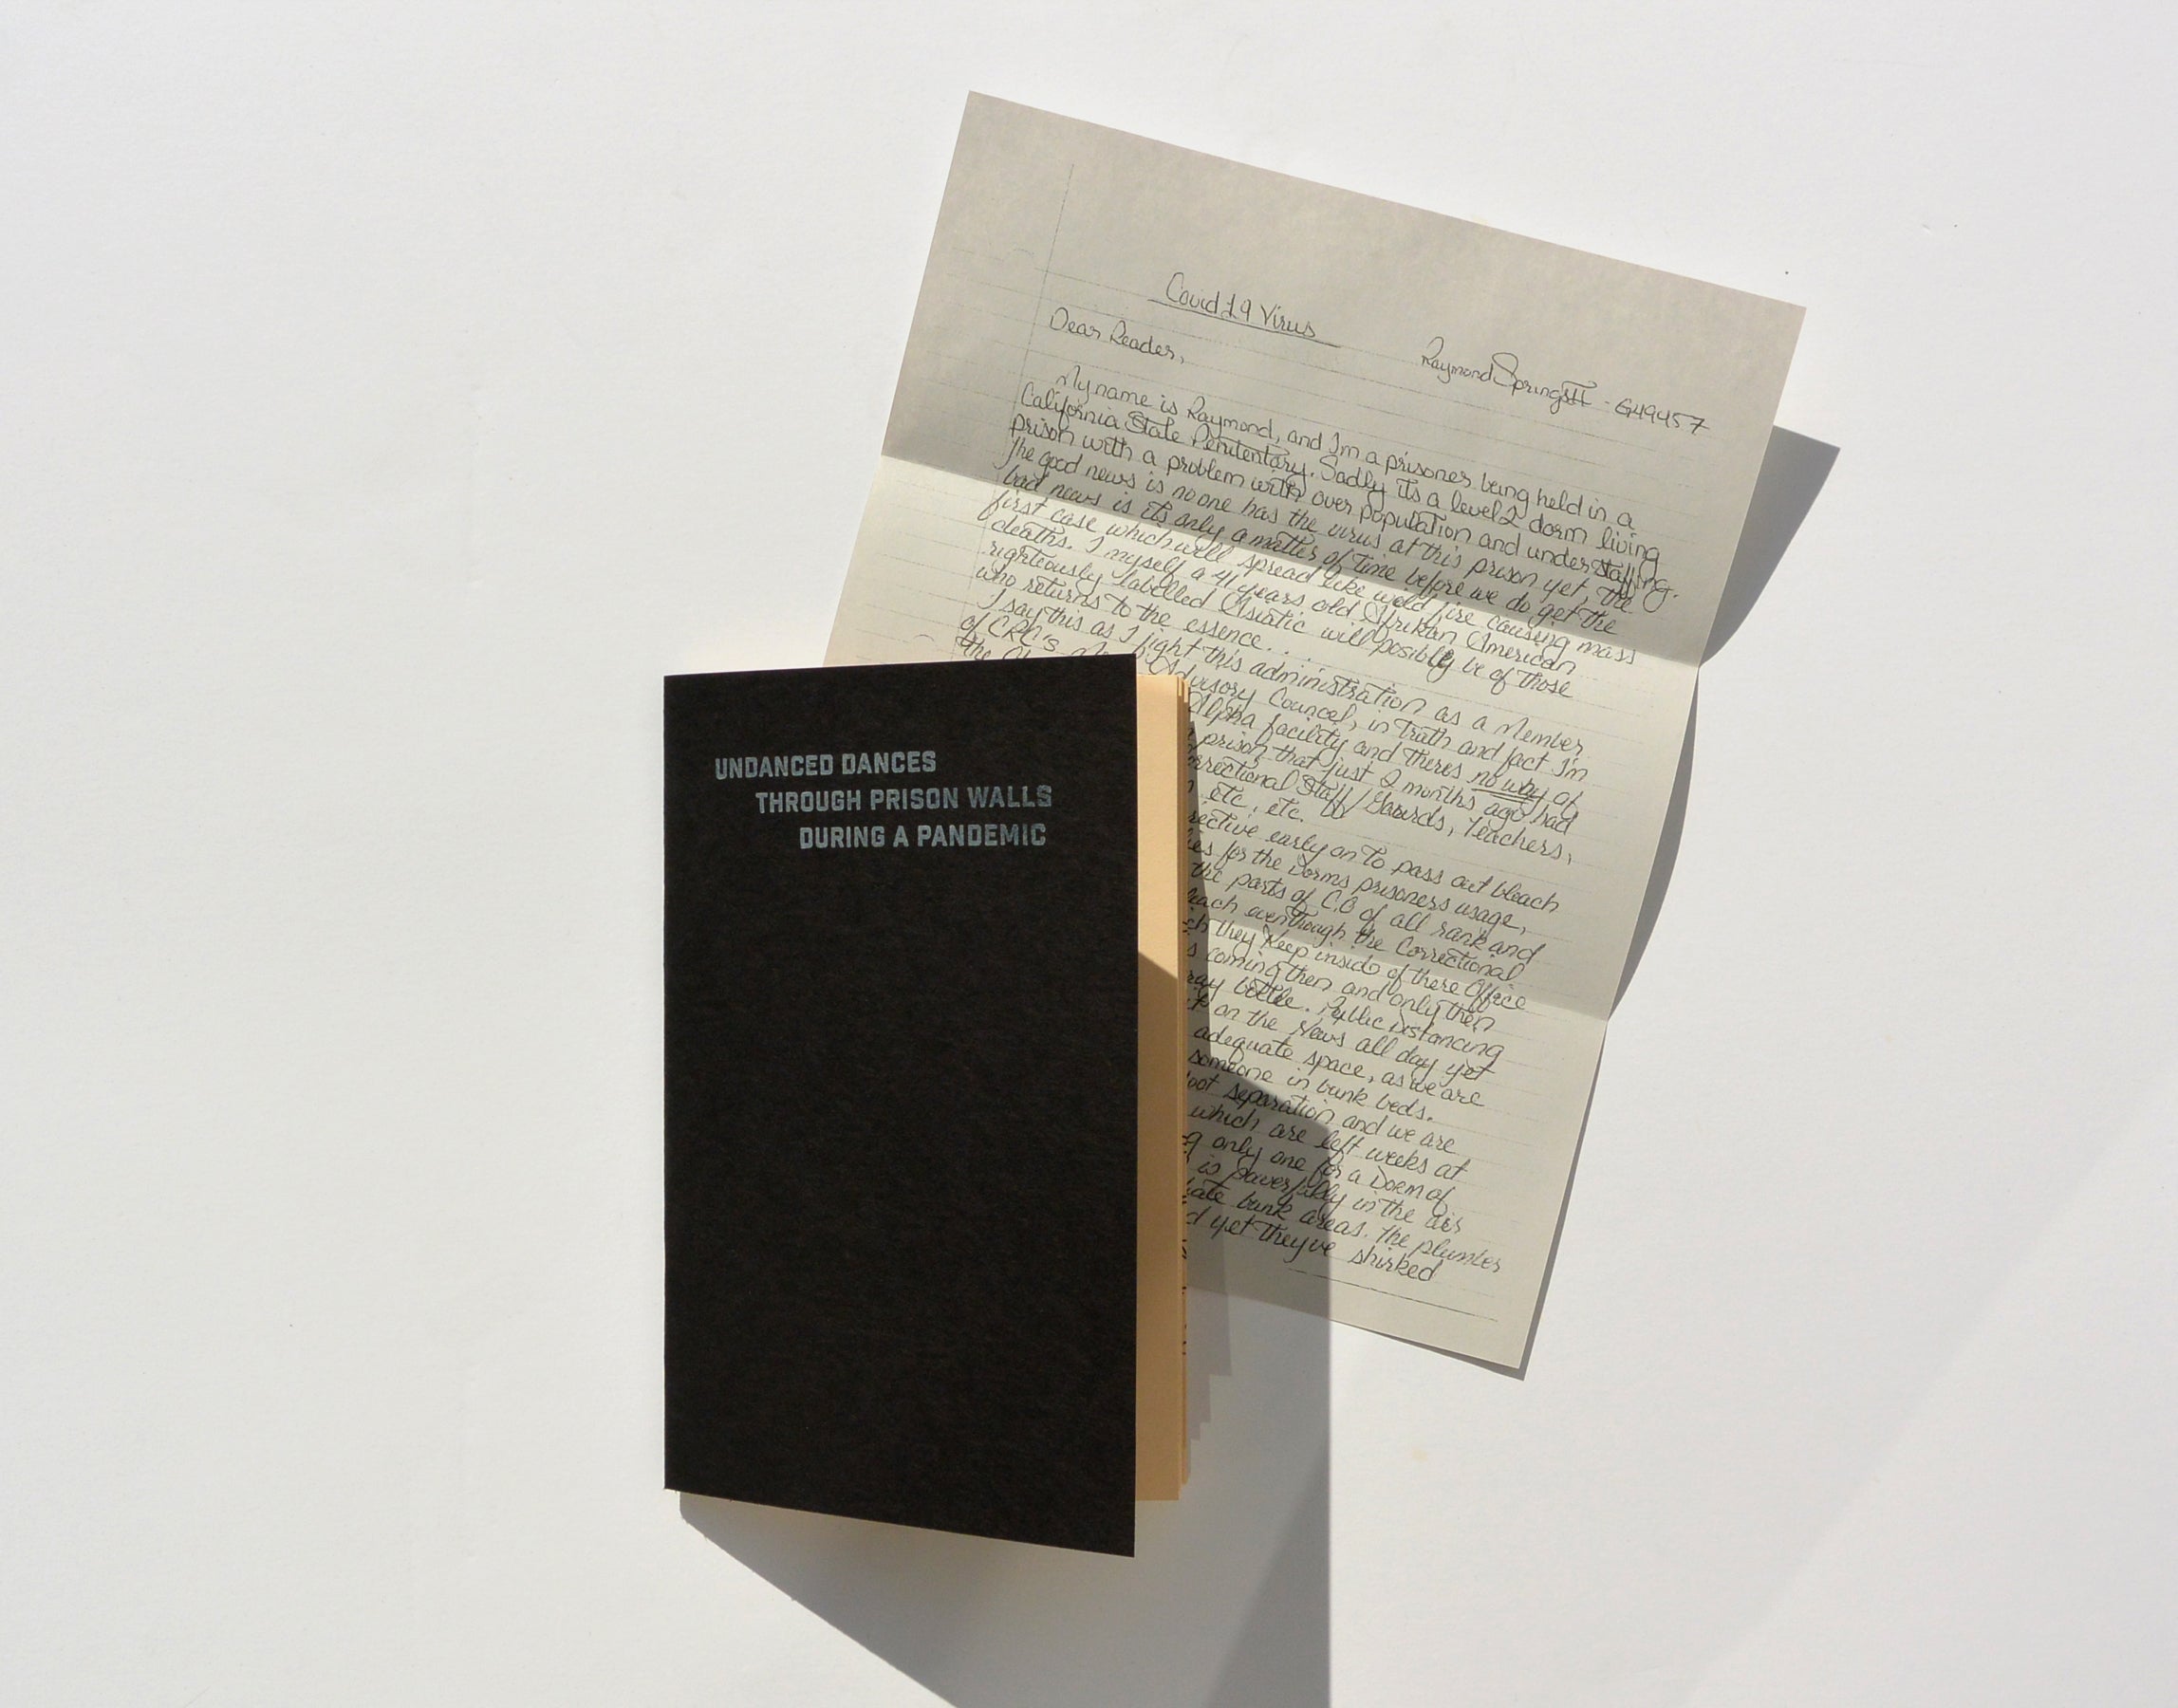 Covid 19 Virus
Raymond Springs III - G49457
Dear Reader,
My name is Raymond, and Im a prisoner being held in a
California State Penitentary. Sadly its a level 2 dorm living
prison with a problem with over population and under staffing.
The good news is no one has the virus at this prison yet, the
bad news is its only a matter of time before we do get the
first case which will spread like wild fire causing mass
deaths. I myself a 41 years old Afrikan American
righteously labelled Asiatic will posibly be of those
who returns to the essence...
I say this as I fight this administration as a Member
of CRC's Advisory Councel, in truth and fact Im
the Alpha facility and theres no way of
prison that just 2 months ago had
Staff/Guards, Teachers,
etc, etc.
early on to pass out bleach
for the Dorms prisoners usage,
the parts of C.O of all rank and
eventhough the Correctional
they keep inside of there Office
coming then and only then
bottle. Public Distancing
on the News all day yet
adequate space, as we are
someone in bunk beds.
separation and we are
which are left weeks at
only one for a Dorm of
is powerfully in the air
bunk areas. The plumber
yet they've shirked
UNDANCED DANCES
THROUGH PRISON WALLS
DURING A PANDEMIC